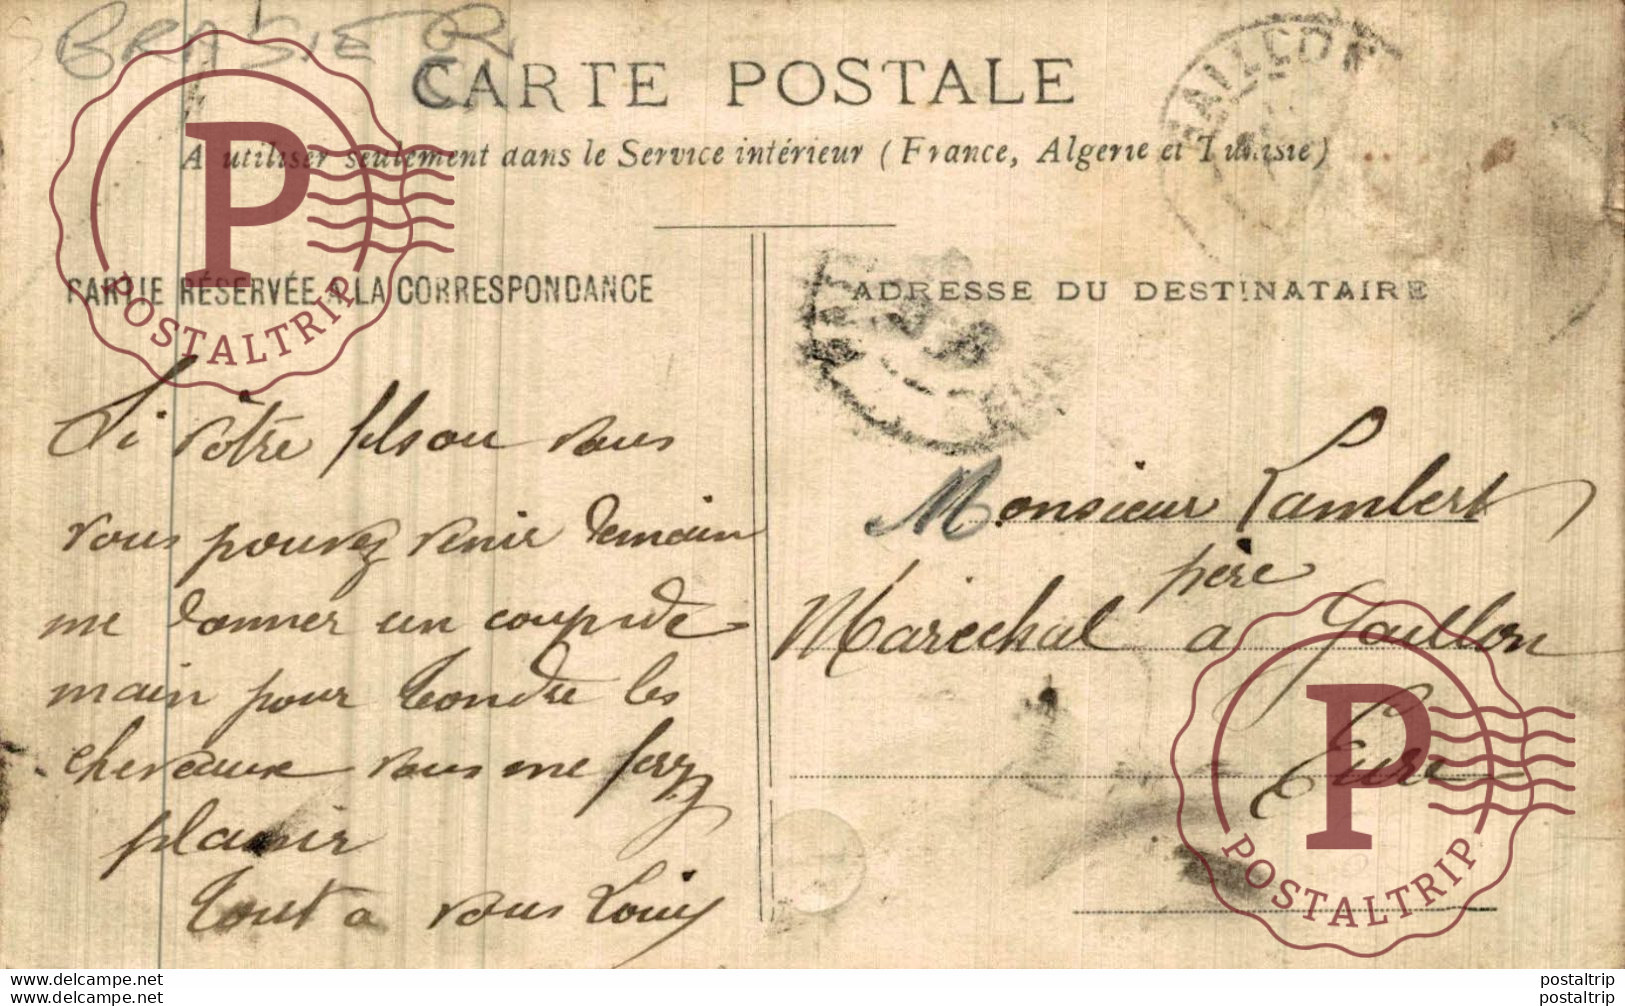 BRASIER
CARTE POSTALE
A utiliser seulement dans le Service intérieur (France, Algerie et Tunisie)
PARTIE RÉSERVÉE A LA CORRESPONDANCE
ADRESSE DU DESTINATAIRE
Si votre fils ou vous
vous pouvez venir demain
me donner un coup de
main pour tondre les
chevaux vous me ferez
plaisir
tout a vous Louis
Monsieur Lambert
père
Maréchal a Gaillon
Eure
P
POSTALTRIP
P
POSTALTRIP
www.delcampe.net
www.delcampe.net
postaltrip
postaltrip